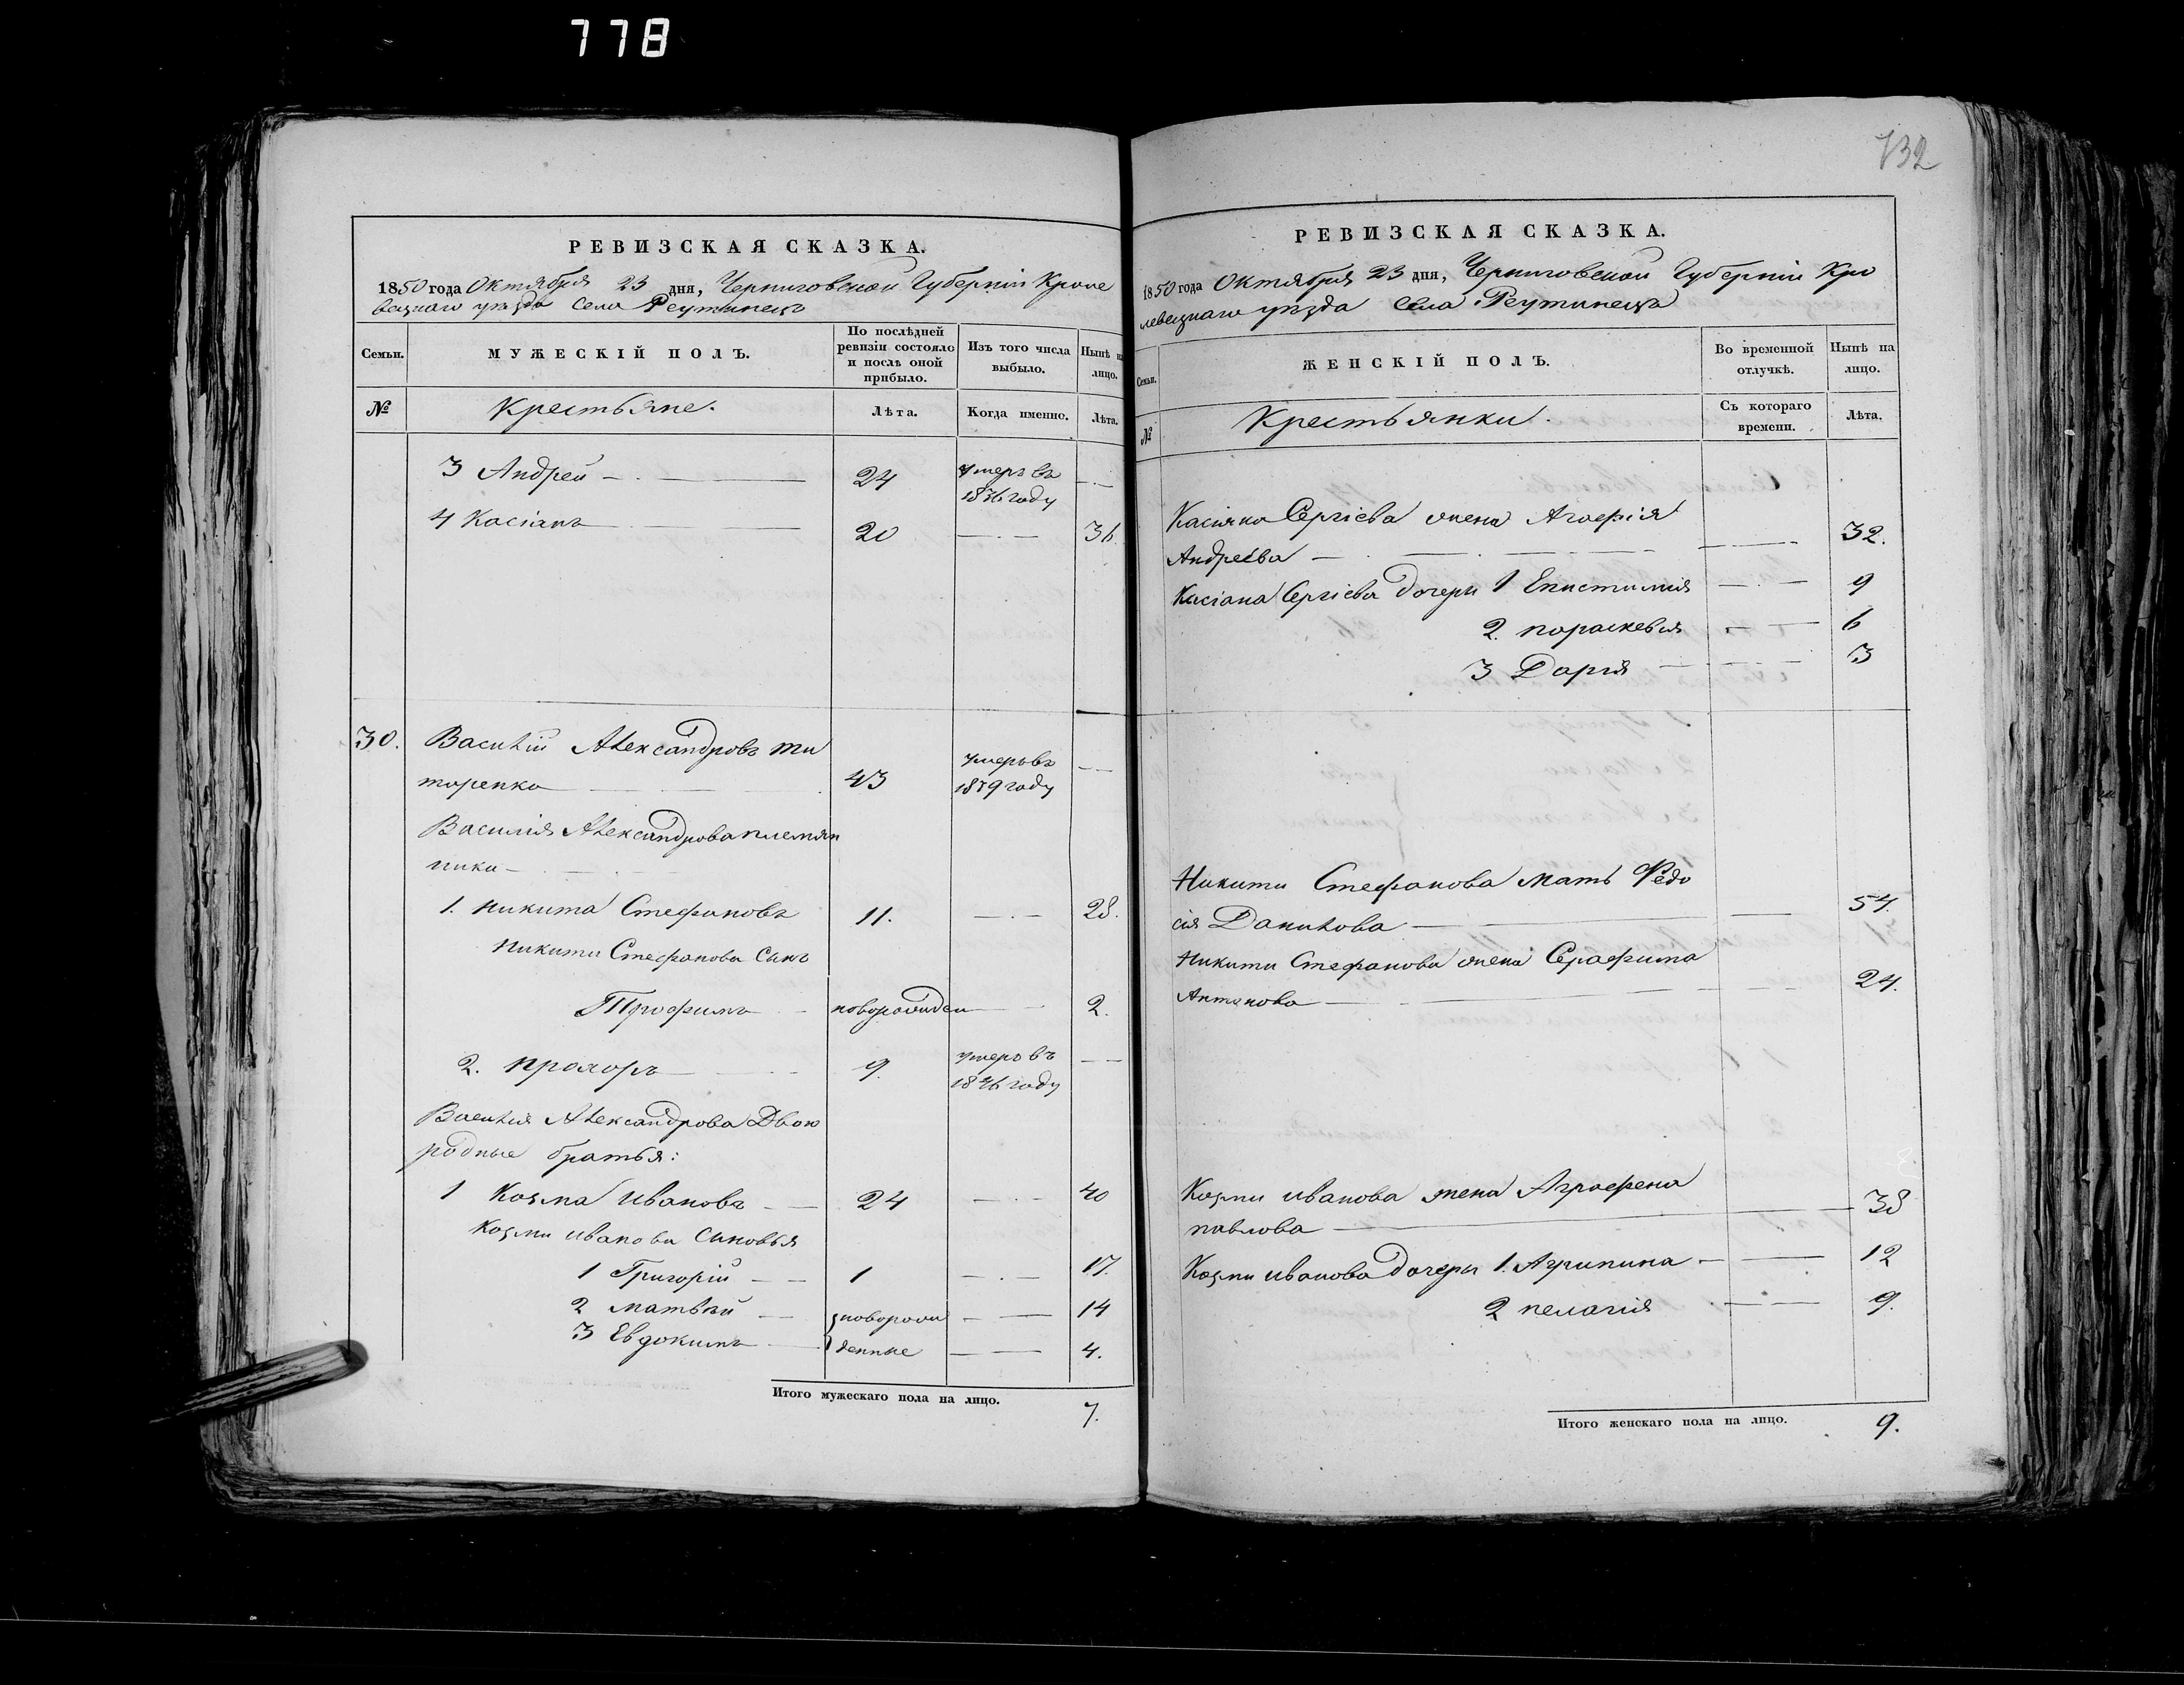 778
РЕВИЗСКАЯ СКАЗКА.
1850 года Октября 23 дня, Черниговской Губерніи Кроле
вецкаго уѣзда Села Реутинецъ
Семьи.
МУЖЕСКІЙ ПОЛЪ.
По послѣдней ревизіи состояло и послѣ оной прибыло.
Изъ того числа выбыло.
Нынѣ на лицо.
№
Крестьяне.
Лѣта.
Когда именно.
Лѣта.
3 Андрей 24 умеръ въ
1836 году
4 Касіанъ 20 36.
30. Василій Александровъ Ти
торенко 43 умеръ въ
1839 году
Василія Александрова племян
ники
1. Никита Стефановъ 11. 28.
Никити Стефанова Сынъ
Трофимъ новорожден 2.
2. Прохоръ 9. умеръ въ
1836 году
Василія Александрова Двою
родные братья:
1 Козма Ивановъ 24 40
Козми Иванова Сыновья
1 Григорій 1 17.
2 Матвѣй новорож 14
3 Евдокимъ денные 4.
Итого мужескаго пола на лицо.
7.
132
РЕВИЗСКАЯ СКАЗКА.
1850 года Октября 23 дня, Черниговской Губерніи Кро
левецкаго уѣзда Села Реутинецъ
Семьи.
ЖЕНСКІЙ ПОЛЪ.
Во временной отлучкѣ.
Нынѣ на лицо.
№
Крестьянки.
Съ котораго времени.
Лѣта.
Касіяна Сергіева жена Агафія
Андреева 32.
Касіана Сергіева дочери 1 Епистимія 9
2. Пораскевія 6
3 Дарія 3
Никити Стефанова мать Федо
сія Данилова 54.
Никити Стефанова жена Серафима
Антонова 24.
Козми Иванова жена Аграфена
Павлова 38
Козми Иванова дочери 1. Агрипина 12
2 Пелагія 9.
Итого женскаго пола на лицо.
9.